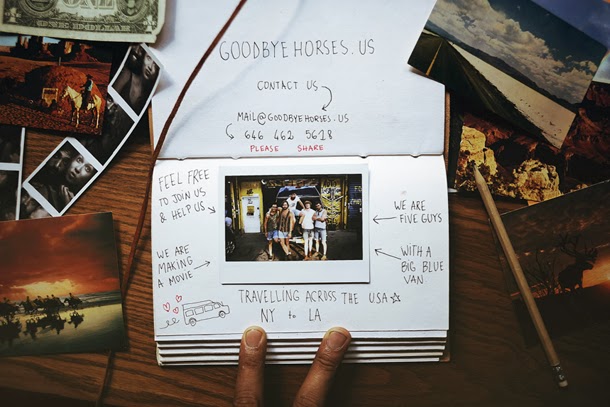 GOODBYEHORSES.US
CONTACT US
MAIL@GOODBYEHORSES.US
646 462 5618
PLEASE SHARE
FEEL FREE
TO JOIN US
& HELP US
WE ARE
FIVE GUYS
WE ARE
MAKING
A MOVIE
WITH A
BIG BLUE
VAN
TRAVELLING ACROSS THE USA
NY to LA
ONE